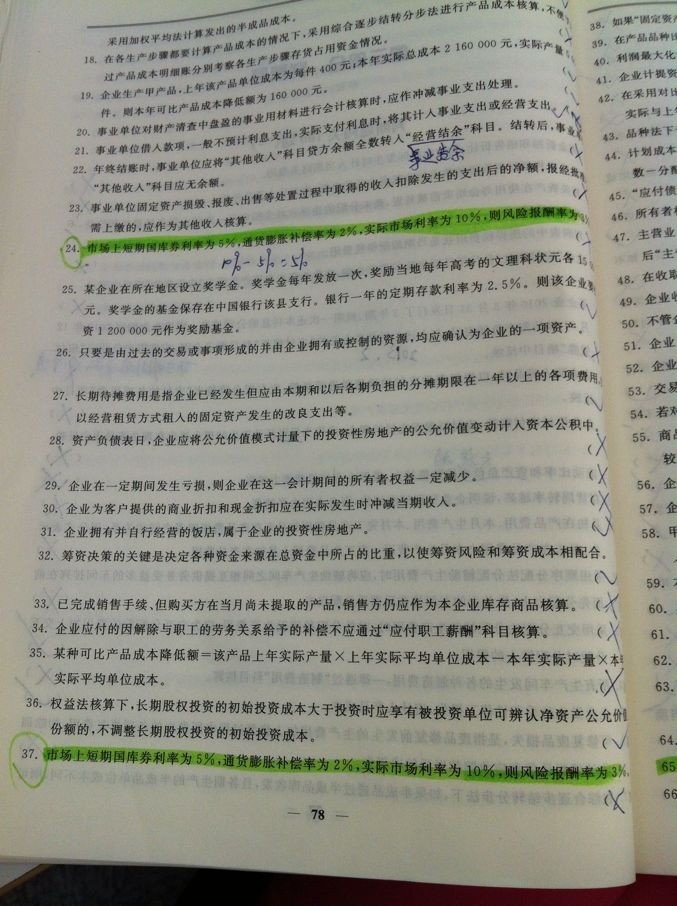 采用加权平均法计算发出的半成品成本。
18. 在各生产步骤都要计算产品成本的情况下,采用综合逐步结转分步法进行产品成本核算,不便
过产品成本明细账分别考察各生产步骤存货占用资金情况。
19. 企业生产甲产品,上年该产品单位成本为每件 400 元;本年实际总成本 2 160 000 元,实际产量
件。则本年可比产品成本降低额为 160 000 元。
20. 事业单位对财产清查中盘盈的事业用材料进行会计核算时,应作冲减事业支出处理。
21. 事业单位借入款项,一般不预计利息支出,实际支付利息时,将其计入事业支出或经营支出。
22. 年终结账时,事业单位应将“其他收入”科目贷方余额全数转入“经营结余”科目。结转后,事业
事业结余
“其他收入”科目应无余额。
23. 事业单位固定资产损毁、报废、出售等处置过程中取得的收入扣除发生的支出后的净额,报经批准
需上缴的,应作为其他收入核算。
24. 市场上短期国库券利率为 5%,通货膨胀补偿率为 2%,实际市场利率为 10%,则风险报酬率为
10%-5%=5%
25. 某企业在所在地区设立奖学金。奖学金每年发放一次,奖励当地每年高考的文理科状元各 15
元。奖学金的基金保存在中国银行该县支行。银行一年的定期存款利率为 2.5%。则该企业要
资 1 200 000 元作为奖励基金。
26. 只要是由过去的交易或事项形成的并由企业拥有或控制的资源,均应确认为企业的一项资产。
27. 长期待摊费用是指企业已经发生但应由本期和以后各期负担的分摊期限在一年以上的各项费用,
以经营租赁方式租入的固定资产发生的改良支出等。
28. 资产负债表日,企业应将公允价值模式计量下的投资性房地产的公允价值变动计入资本公积中。
29. 企业在一定期间发生亏损,则企业在这一会计期间的所有者权益一定减少。
30. 企业为客户提供的商业折扣和现金折扣应在实际发生时冲减当期收入。
31. 企业拥有并自行经营的饭店,属于企业的投资性房地产。
32. 筹资决策的关键是决定各种资金来源在总资金中所占的比重,以使筹资风险和筹资成本相配合。
33. 已完成销售手续、但购买方在当月尚未提取的产品,销售方仍应作为本企业库存商品核算。
34. 企业应付的因解除与职工的劳务关系给予的补偿不应通过“应付职工薪酬”科目核算。
35. 某种可比产品成本降低额=该产品上年实际产量×上年实际平均单位成本-本年实际产量×本年
实际平均单位成本。
36. 权益法核算下,长期股权投资的初始投资成本大于投资时应享有被投资单位可辨认净资产公允价值
份额的,不调整长期股权投资的初始投资成本。
37. 市场上短期国库券利率为 5%,通货膨胀补偿率为 2%,实际市场利率为 10%,则风险报酬率为 3%。
— 78 —
38. 如果“固定资产
39. 在产品品种出
40. 利润最大化
41. 企业计提资
42. 在采用对比
实际与上
43. 品种法下
44. 计划成本
数-分配
45. “应付债
46. 所有者
47. 主营业
后“主
48. 在收取
49. 企业收
50. 不管企
51. 企业
52. 企业
53. 交易
54. 若对
55. 商品
较
56. 企
57. 企
58. 甲
59.
60.
61.
62.
63.
64.
65
66